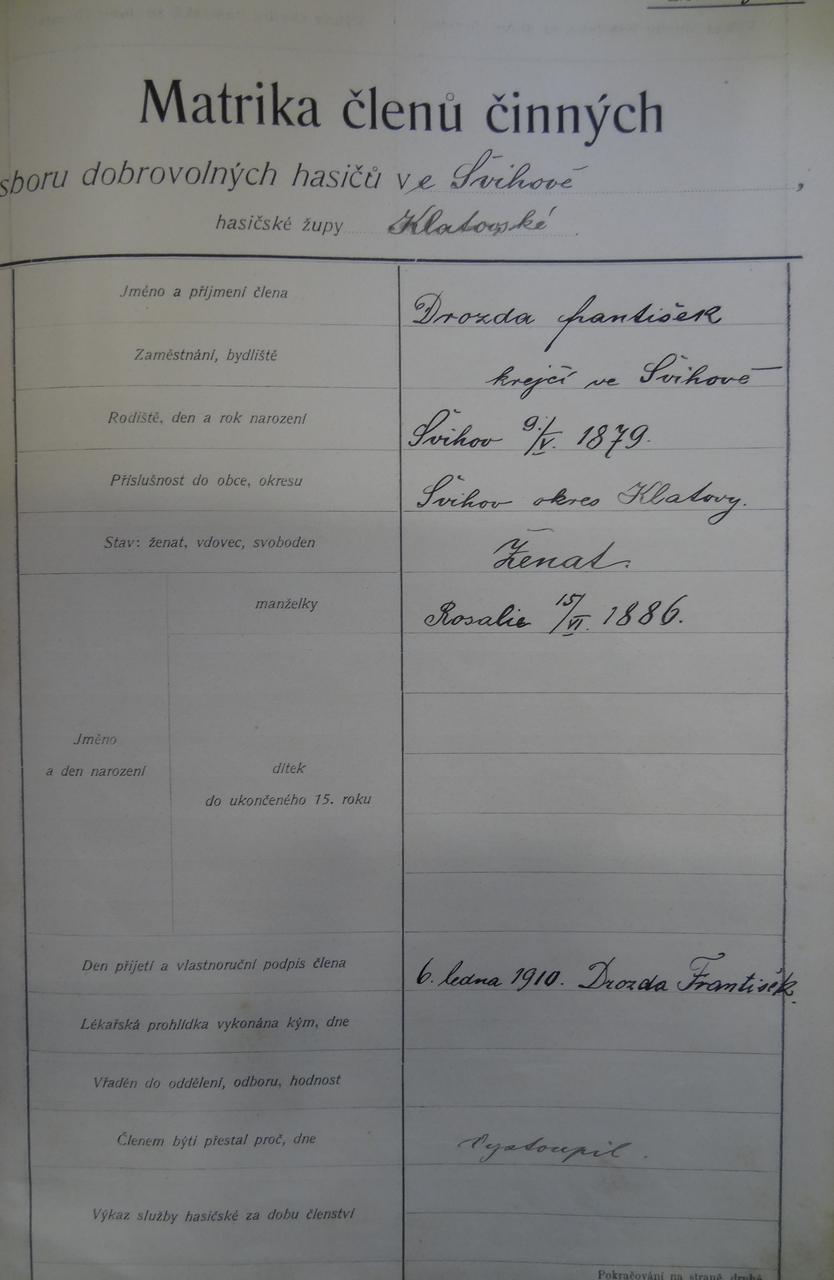 Matrika členů činných
sboru dobrovolných hasičů ve Švihově,
hasičské župy Klatovské.
Jméno a příjmení člena Drozda františek
Zaměstnání, bydliště krejčí ve Švihově
Rodiště, den a rok narození Švihov 9./V. 1879.
Příslušnost do obce, okresu Švihov okres Klatovy.
Stav: ženat, vdovec, svoboden Ženat.
manželky Rosalie 15/VI. 1886.
Jméno
a den narození
dítek
do ukončeného 15. roku
Den přijetí a vlastnoruční podpis člena 6. ledna 1910. Drozda František.
Lékařská prohlídka vykonána kým, dne
Vřaděn do oddělení, odboru, hodnost
Členem býti přestal proč, dne Vystoupil.
Výkaz služby hasičské za dobu členství
Pokračování na straně druhé